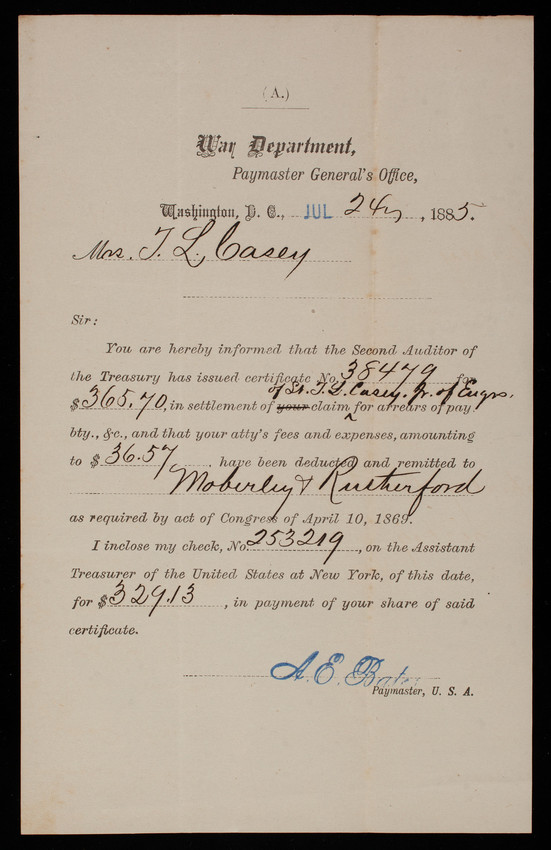 (A.)
War Department,
Paymaster General's Office,
Washington, D. C., JUL 24, 1885.
Mrs. T. L. Casey
Sir:
You are hereby informed that the Second Auditor of
the Treasury has issued certificate No. 38479 for
of Lt. T. L. Casey, Jr. of Engrs.
$365.70, in settlement of your claim for arrears of pay
bty., &c., and that your atty's fees and expenses, amounting
to $36.57, have been deducted and remitted to
Moberley & Rutherford
as required by act of Congress of April 10, 1869.
I inclose my check, No. 253219, on the Assistant
Treasurer of the United States at New York, of this date,
for $329.13, in payment of your share of said
certificate.
A. E. Bates
Paymaster, U. S. A.